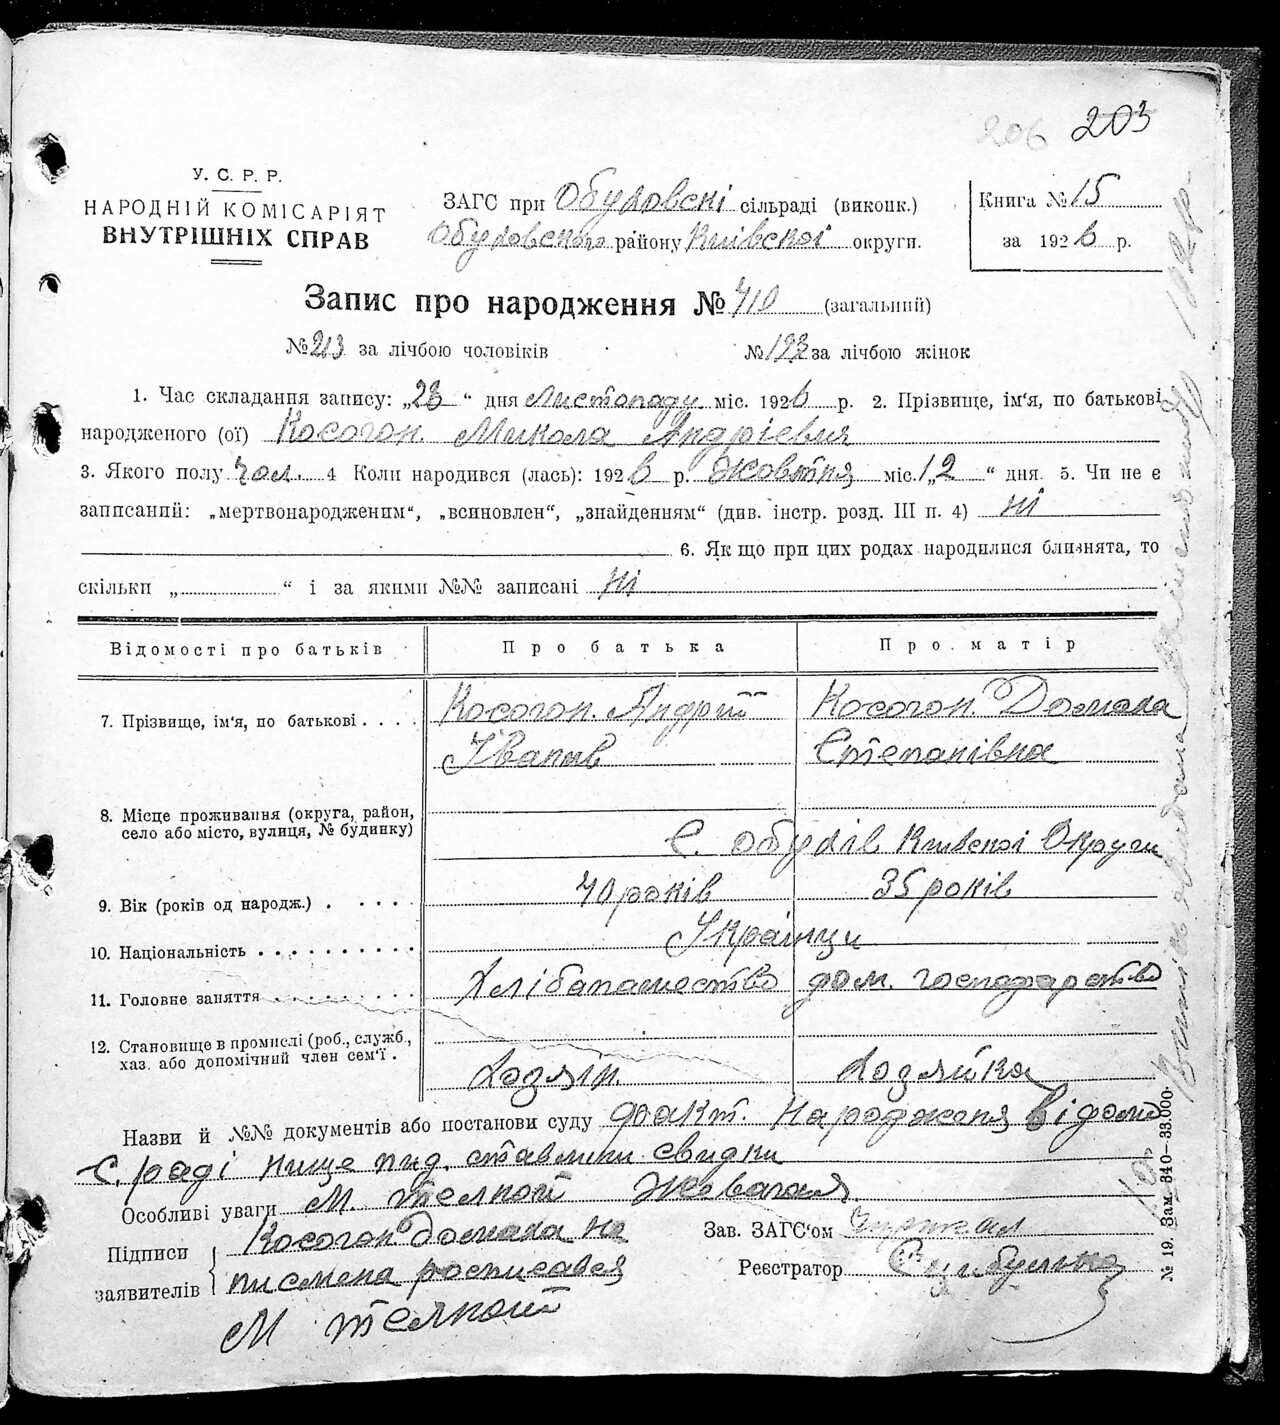 206 203
У. С. Р. Р.
НАРОДНІЙ КОМІСАРІЯТ
ВНУТРІШНІХ СПРАВ
ЗАГС при Обуховскі сільраді (виконк.)
Обуховского району Київскої округи.
Книга № 15
за 1926 р.
Запис про народження № 410 (загальний)
№ 213 за лічбою чоловіків № 193 за лічбою жінок
1. Час складання запису: „23“ дня Листопаду міс. 1926 р. 2. Прізвище, ім‘я, по батькові
народженого (ої) Косогон. Микола Андрієвич
3. Якого полу чол. 4 Коли народився (лась): 1926 р. Жовтня міс. „12“ дня. 5. Чи не є
записаний: „мертвонародженим“, „всиновлен“, „знайденням“ (див. інстр. розд. III п. 4) ні
6. Як що при цих родах народилися близнята, то
скільки „ “ і за якими №№ записані ні
Відомості про батьків Про батька Про матір
7. Прізвище, ім‘я, по батькові . . . . Косогон. Андрій Косогон. Домаха
Іванов Степанівна
8. Місце проживання (округа, район,
село або місто, вулиця, № будинку) С. Обухів Київскої Округи
9. Вік (років од народж.) . . . . . 40 років 35 років
10. Національність . . . . . . . . Українци
11. Головне заняття . . . . . . . Хлібапашество дом. господарство
12. Становище в промислі (роб., служб.,
хаз. або допомічний член сем‘ї . Хозяін. Хозяйка
Назви й №№ документів або постанови суду факт. Народженя відомо
С. раді нище под. ставлени свидки
Особливі уваги М. Телпой
Підписи заявителів Косогон Домаха не
писмена росписався
М Телпой
Зав. ЗАГС‘ом
Реєстратор Єцибулько
№ 19. Зам. 340—33.000.